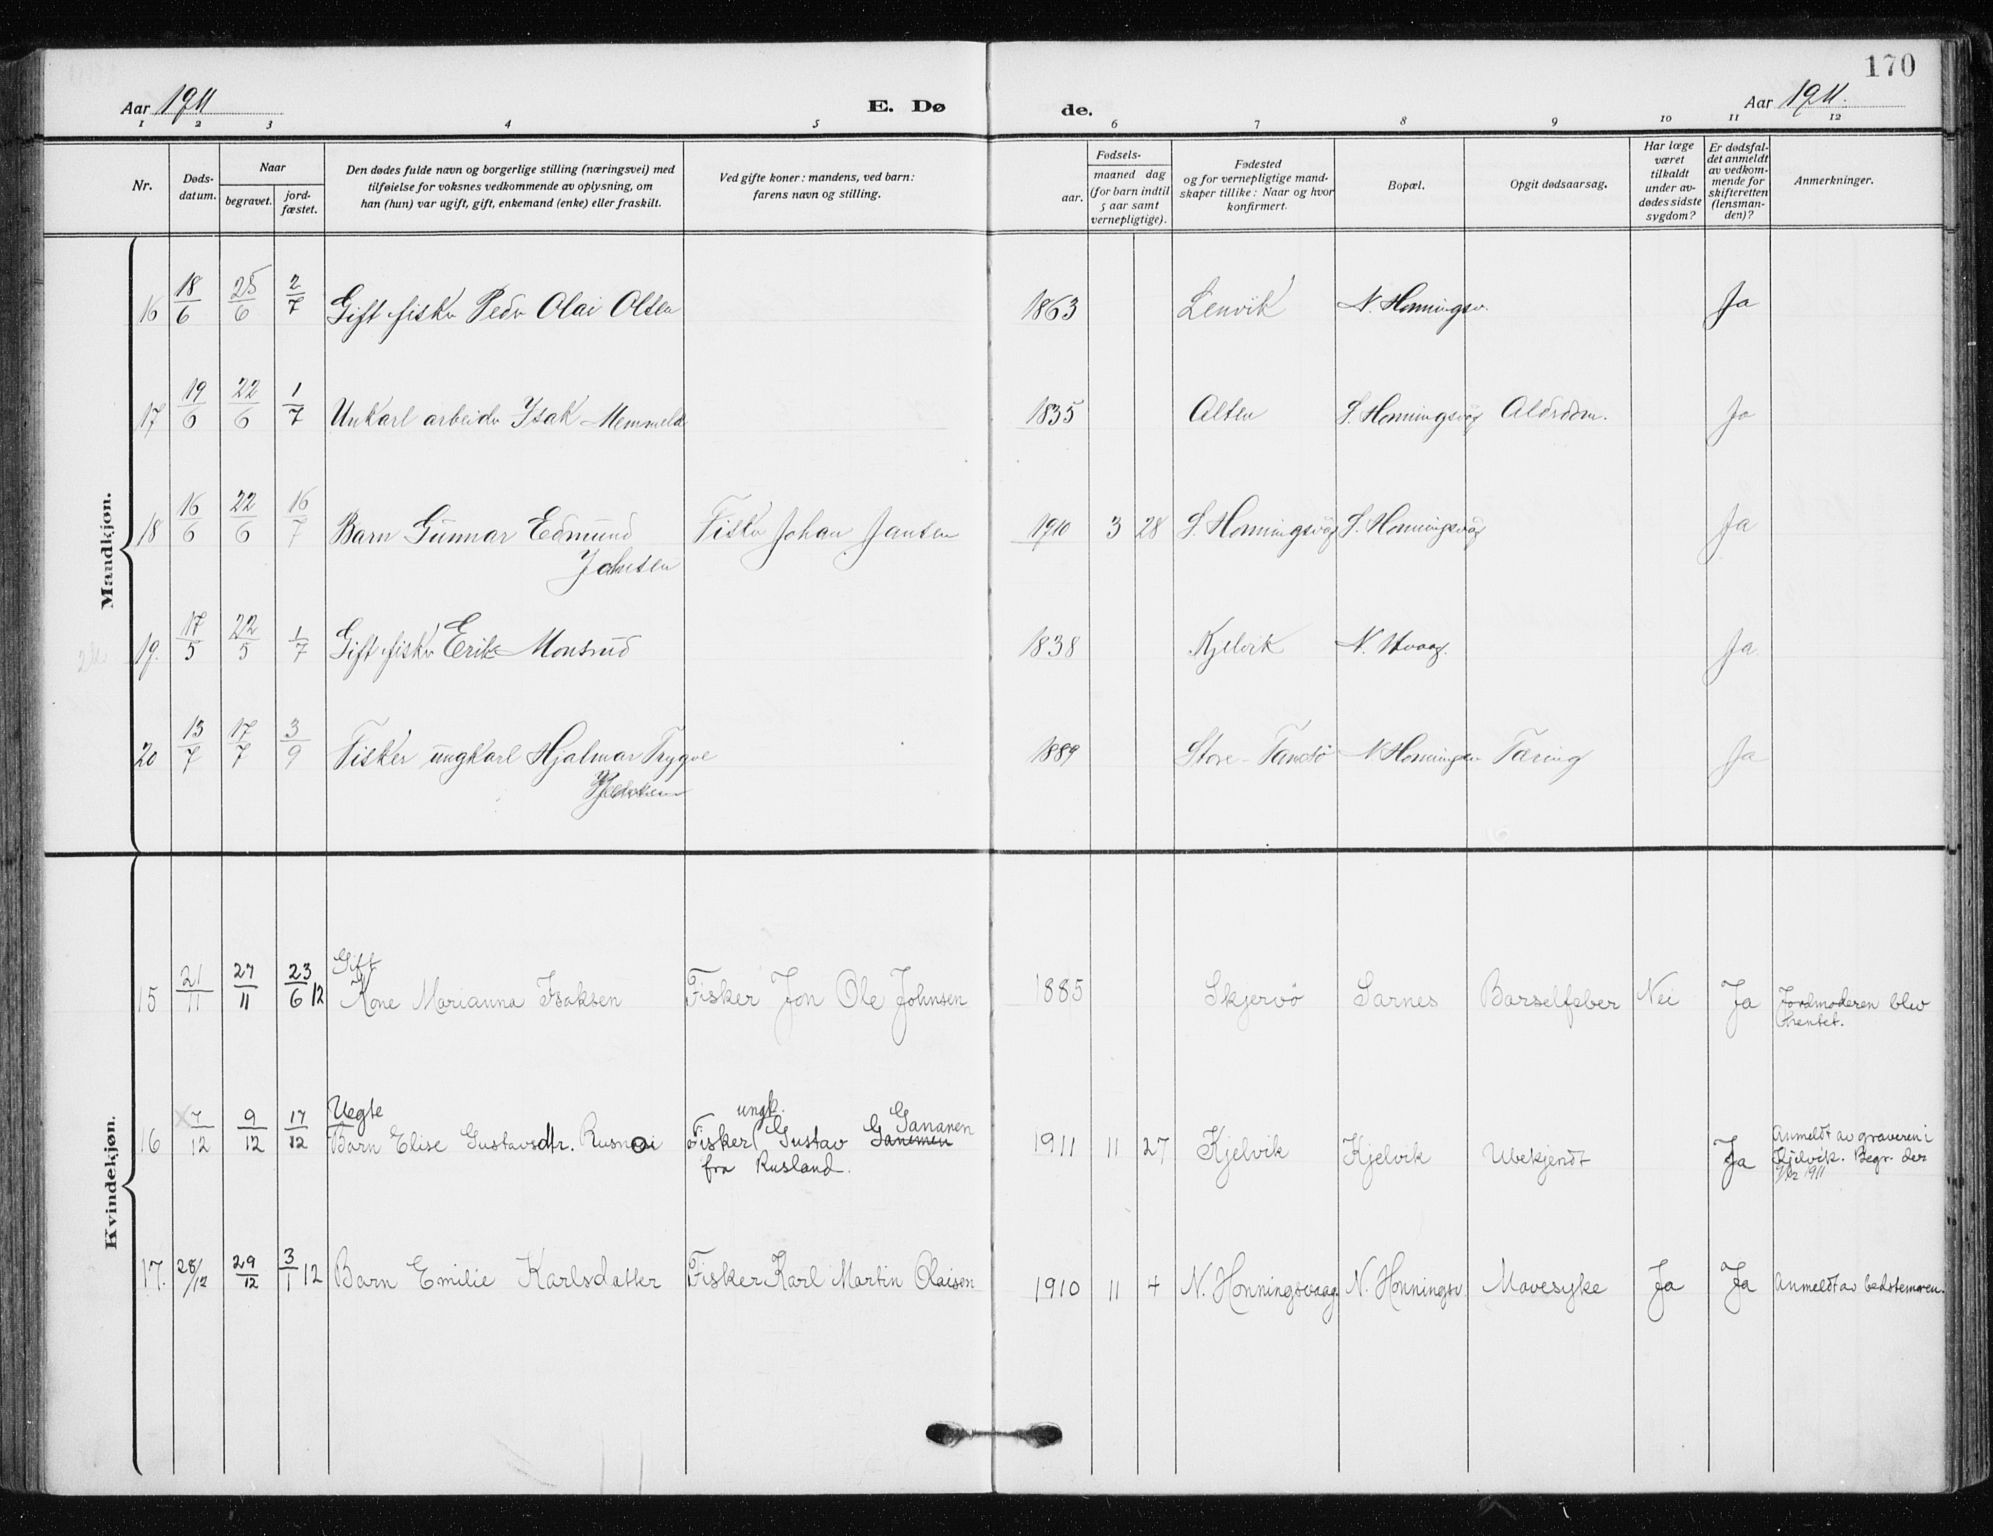 170
Aar 1911 E. Dø de. Aar 1911.
1 2 3 4 5 6 7 8 9 10 11 12
Nr.
Døds-
datum.
Naar
begravet.
jord-
fæstet.
Den dødes fulde navn og borgerlige stilling (næringsvei) med
tilføielse for voksnes vedkommende av oplysning, om
han (hun) var ugift, gift, enkemand (enke) eller fraskilt.
Ved gifte koner: mandens, ved barn:
farens navn og stilling.
Fødsels-
aar.
maaned dag
(for barn indtil
5 aar samt
vernepligtige).
Fødested
og for vernepligtige mand-
skaper tillike: Naar og hvor
konfirmert.
Bopæl.
Opgit dødsaarsag.
Har læge
været
tilkaldt
under av-
dødes sidste
sygdom?
Er dødsfal-
det anmeldt
av vedkom-
mende for
skifteretten
(lensman-
den)?
Anmerkninger.
Mandkjøn.
16 18/6 25/6 2/7 Gift fisker Peder Olai Olsen 1863 Lenvik N. Honningsv. Ja
17 19/6 22/6 1/7 Unkarl arbeider Isak 1835 Alten S. Honningsvåg Alderdom. Ja
18 16/6 22/6 16/7 Barn Gunnar Edmund Fisker Johan Jansen 1910 3 28 S. Honningsvåg S. Honningsvåg Ja
19. 17/5 22/5 1/7 Gift fisker Erik Monsrud 1838 Kjelvik Ja
20 13/7 17/7 3/9 Fisker ungkarl Hjalmar Trygve 1889 Store-Tamsø Tæring Ja
Kvindekjøn.
Gift
15 21/11 27/11 23/6 12 Kone Marianna Isaksen Fisker Jon Ole Johnsen 1885 Skjervö Sarnes Barselfeber Nei Ja Jordmoderen blev
hentet.
Uegte ungk. Gananen
16 7/12 9/12 17/12 Barn Elise Gustavsdtr. Fisker Gustav Ganemen 1911 11 27 Kjelvik Kjelvik Ubekjendt Ja Anmeldt av graveren i
fra Rusland. Kjelvik. Begr. der
9/12 1911
17. 28/12 29/12 3/1 12 Barn Emilie Karlsdatter Fisker Karl Martin Olaisen 1910 11 4 N. Honningsvaag N. Honningsv. Mavesyke Ja Ja Anmeldt av bedstemoren.